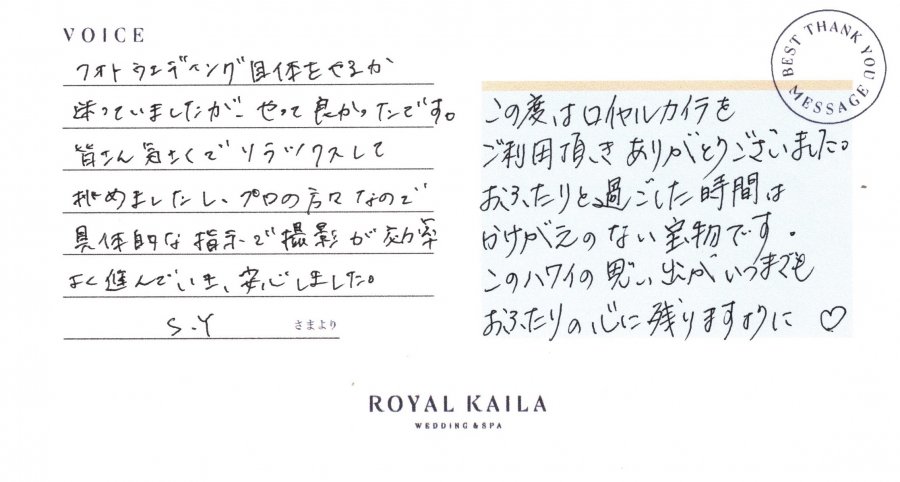 VOICE
フォトウエディング自体をやるか
迷っていましたが、やって良かったです。
皆さん気さくでリラックスして
挑めましたし、プロの方々なので
具体的な指示で撮影が効率
よく進んでいき、安心しました。
S.Y さまより
BEST THANK YOU MESSAGE
この度はロイヤルカイラを
ご利用頂きありがとうございました。
おふたりと過ごした時間は
かけがえのない宝物です。
このハワイの思い出がいつまでも
おふたりの心に残りますように♡
ROYAL KAILA
WEDDING & SPA